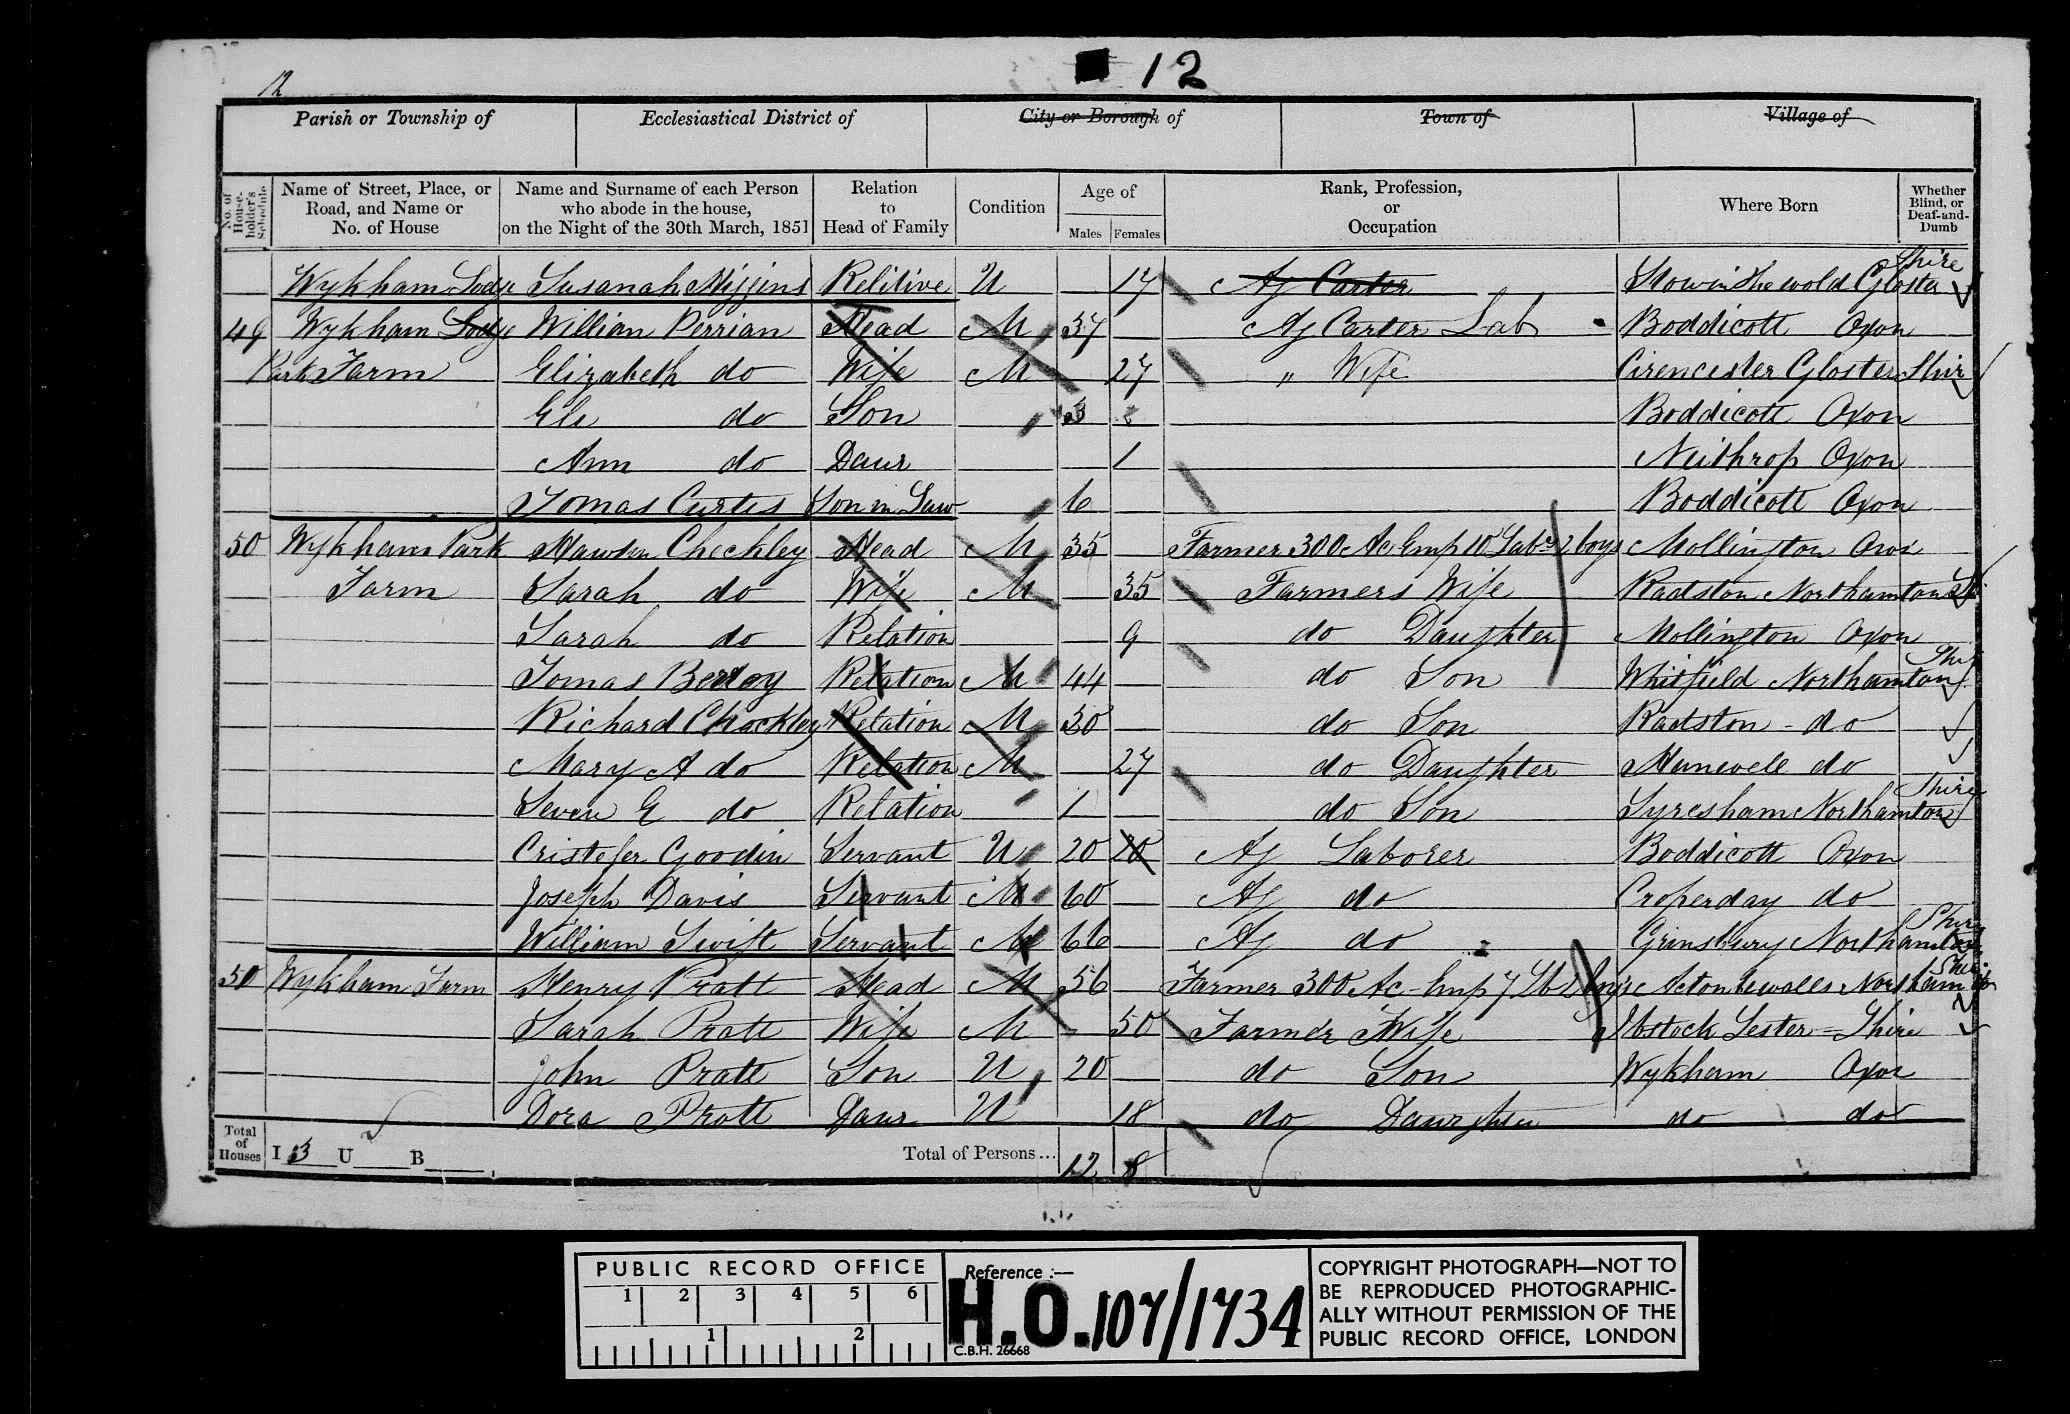 12
12
Parish or Township of Ecclesiastical District of City or Borough of Town of Village of
No. of House-holder's Schedule Name of Street, Place, or Road, and Name or No. of House Name and Surname of each Person who abode in the house, on the Night of the 30th March, 1851 Relation to Head of Family Condition Age of Males Females Rank, Profession, or Occupation Where Born Whether Blind, or Deaf-and-Dumb
Wykham Lodge Susanah Higgins Relitive U 17 Ag Carter Stow in the wold Gloster Shire
49 Wykham Lodge William Perrian Head M 37 Ag Carter Lab Boddicott Oxon
Park Farm Elizabeth do Wife M 27 " Wife Cirencester Gloster Shir
Eli do Son 3 Boddicott Oxon
Ann do Daur 1 Neithrop Oxon
Tomas Curtis Son in Law 6 Boddicott Oxon
50 Wykham Park Checkley Head M 35 Farmer 300 Ac Emp 10 Labs 2 boys Mollington Oxon
Farm Sarah do Wife M 35 Farmers Wife Radston Northamton Sh
Sarah do Relation 9 do Daughter Mollington Oxon
Tomas Relation M 44 do Son Whitfield Northamton Shir
Richard Checkley Relation M 30 do Son Radston - do
Mary A do Relation M 27 do Daughter do
E do Relation 1 do Son Syresham Northamton Shire
Cristofer Goodin Servant U 20 20 Ag Laborer Boddicott Oxon
Joseph Davis Servant M 60 Ag do Croperday do
William Swift Servant M 66 Ag do Grimsbury Northamton Shire
50 Wykham Farm Henry Pratt Head M 56 Farmer 300 Ac - Emp 7 Lb Acton Northamton Shir
Sarah Pratt Wife M 50 Farmer Wife Ibstock Lester = Shire
John Pratt Son U 20 do Son Wykham Oxon
Dora Pratt Daur U 18 do Daurghter do do
Total of Houses I 3 U B Total of Persons... 12 8
PUBLIC RECORD OFFICE
1 2 3 4 5 6
1 2
Reference :—
H.O. 107/1734
C.B.H. 26668
COPYRIGHT PHOTOGRAPH—NOT TO
BE REPRODUCED PHOTOGRAPHIC-
ALLY WITHOUT PERMISSION OF THE
PUBLIC RECORD OFFICE, LONDON